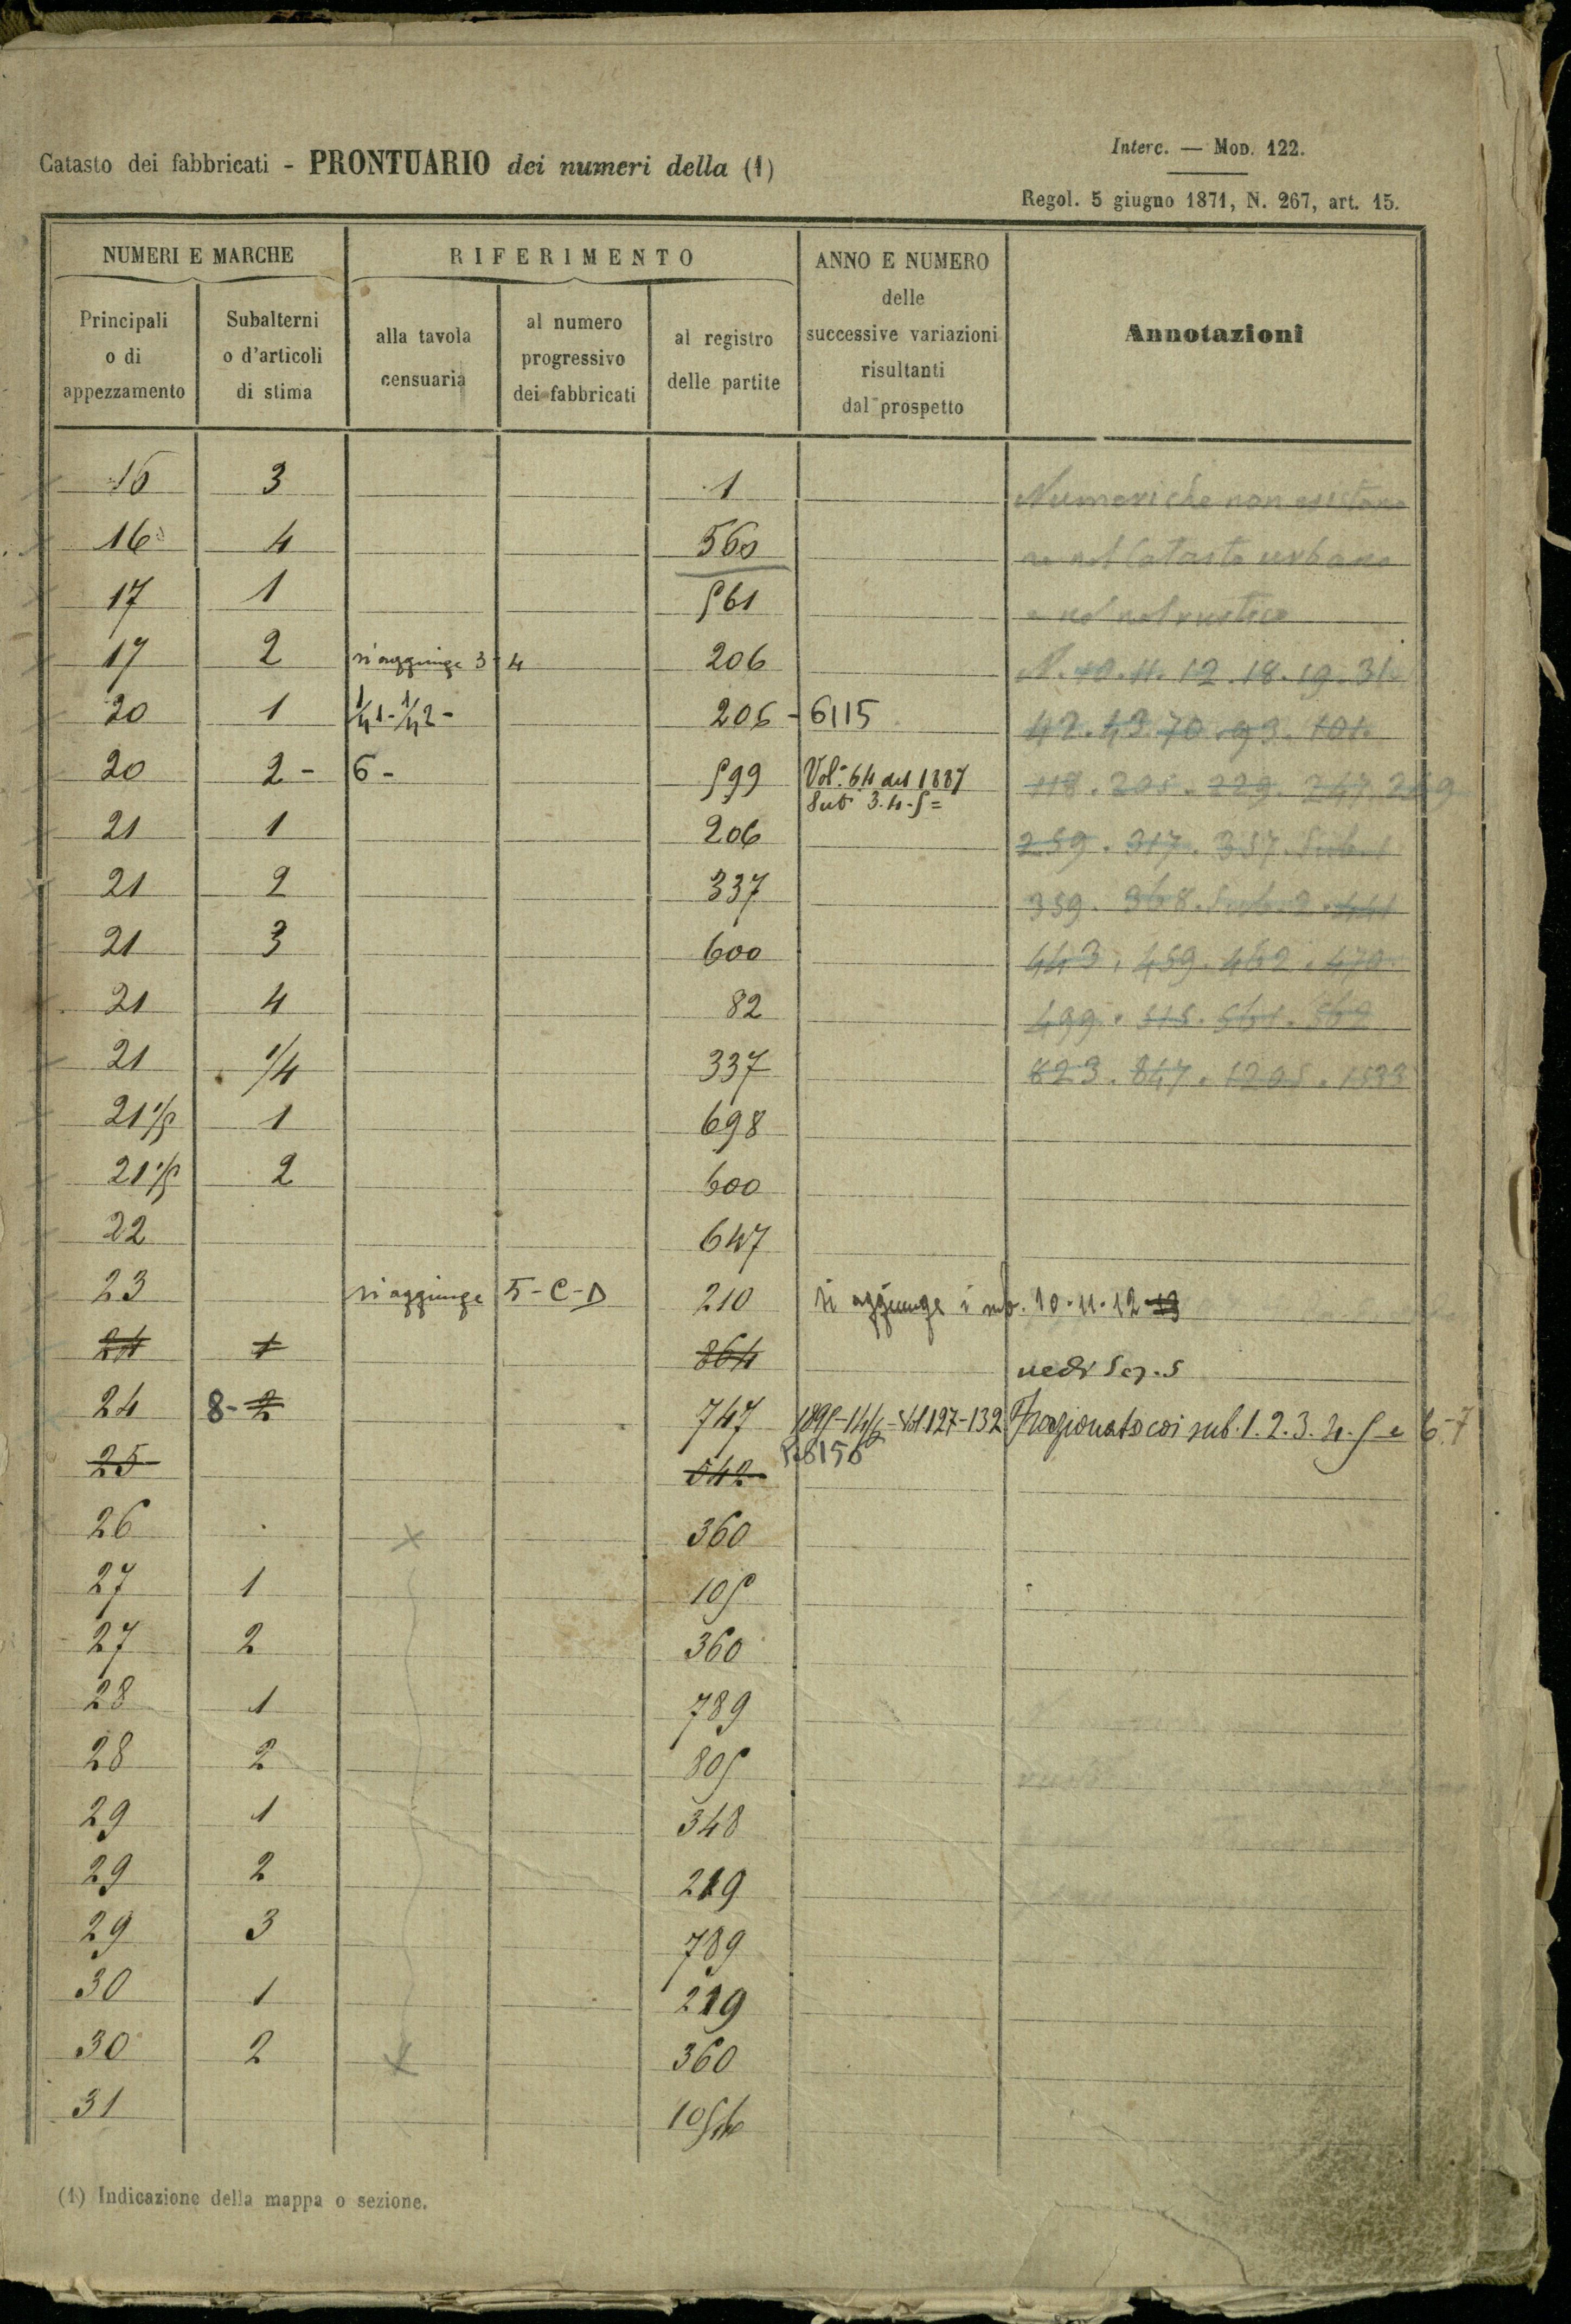 Interc. — Mod. 122.
Catasto dei fabbricati - PRONTUARIO dei numeri della (1)
Regol. 5 giugno 1871, N. 267, art. 15.
NUMERI E MARCHE
RIFERIMENTO
ANNO E NUMERO
delle
successive variazioni
risultanti
dal prospetto
Annotazioni
Principali
o di
appezzamento
Subalterni
o d'articoli
di stima
alla tavola
censuaria
al numero
progressivo
dei fabbricati
al registro
delle partite
3 1 Numeri che non esistono
16 4 560 nel Catasto urbano
17 1 561 nel rustico
17 2 si aggiunge 3-4 206 N. 10. 11. 12. 18. 19. 31.
20 1 1/41-1/42- 206 - 6115 42. 43. 70. 93. 101.
20 2 - 6 - 599 Vol. 64 del 1887 118. 205. 229. 247. 249
Sub 3.4.5=
21 1 206 259. 317. 357. Sub. 1
21 2 337 359. 368. Sub. 2. 441
21 3 600 443. 459. 462. 470.
21 4 82 499. 515. 561. 569
21 1/4 337 823. 847. 1205. 1533
21 1/5 1 698
21 1/5 2 600
22 647
23 si aggiunge 5-C-D 210 si aggiunge i sub. 10.11.12-13
24 1 864 vedi Seg. 5
24 8-2 747 127-132 Frazionato coi sub. 1.2.3.4.5 e 6-7
8156
25 542
26 360
27 1 105
27 2 360
28 1 789
28 2 805
29 1 348
29 2 219
29 3 789
30 1 219
30 2 360
31
(1) Indicazione della mappa o sezione.